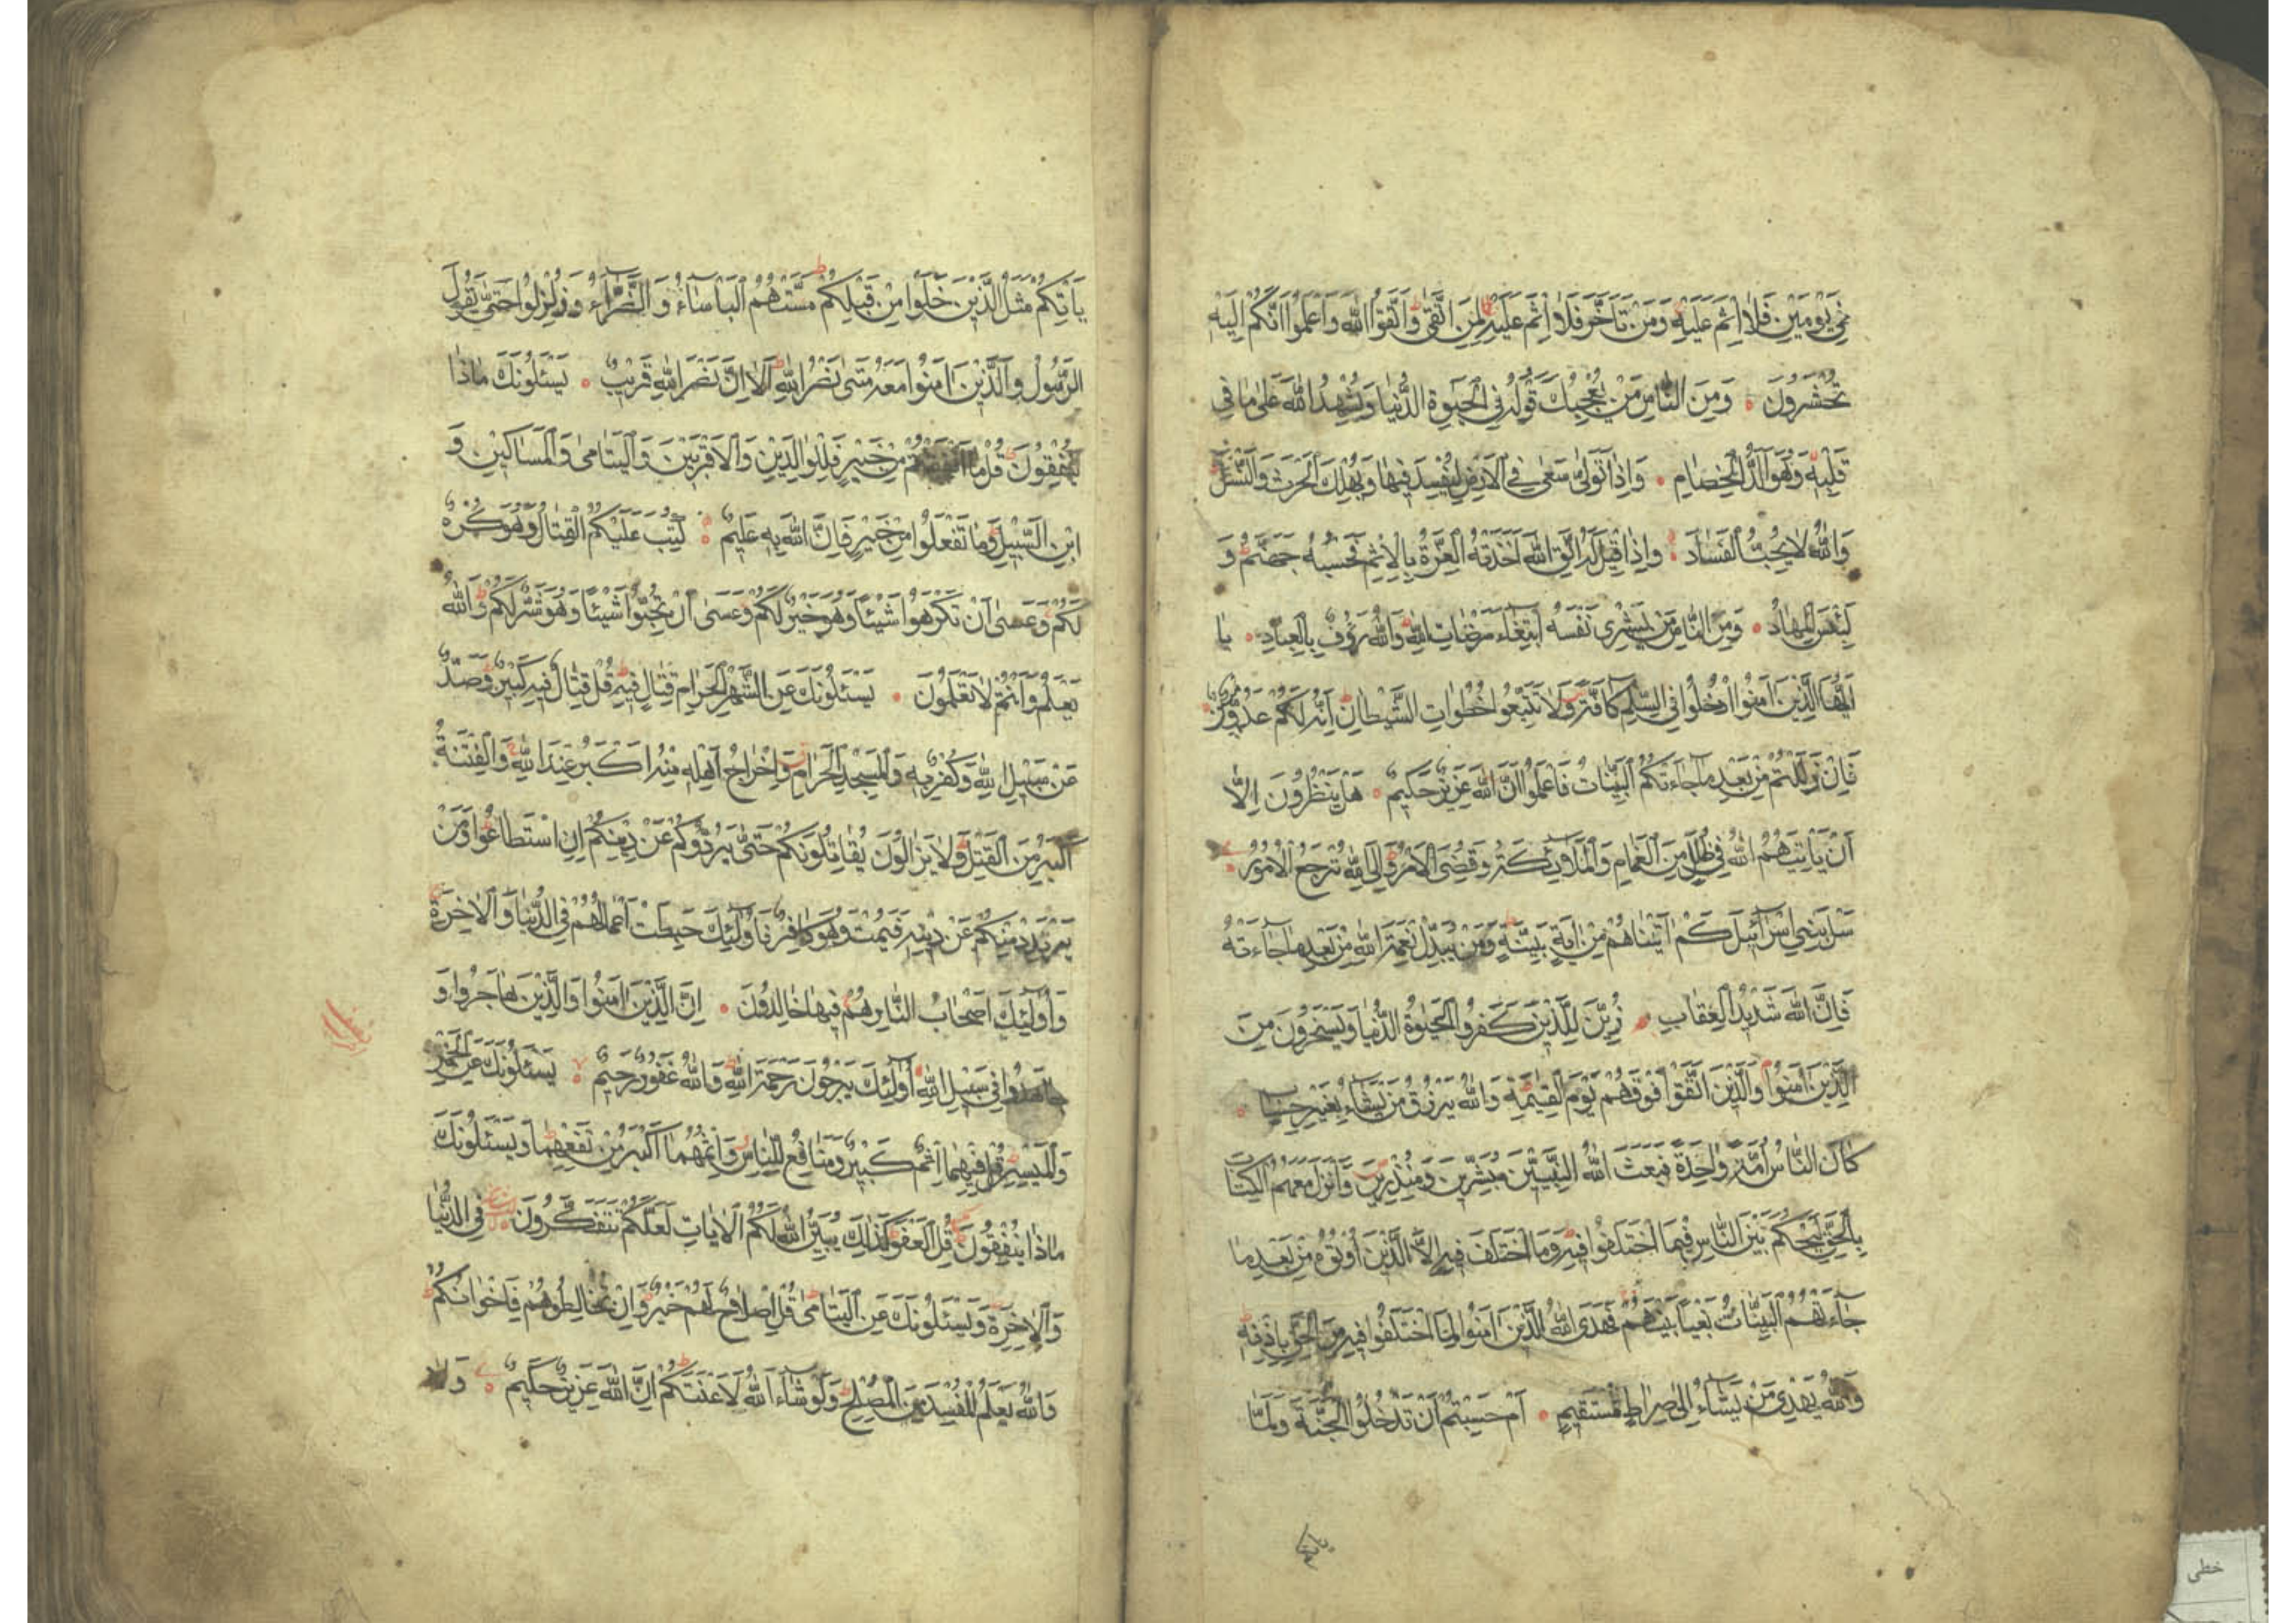 فِي يَوْمَيْنِ فَلَا اِثْمَ عَلَيْهِ وَمَنْ تَاَخَّرَ فَلَا اِثْمَ عَلَيْهِ لِمَنِ اتَّقٰى وَاتَّقُوا اللّٰهَ وَاعْلَمُوا اَنَّكُمْ اِلَيْهِ
تُحْشَرُونَ وَمِنَ النَّاسِ مَنْ يُعْجِبُكَ قَوْلُهُ فِي الْحَيٰوةِ الدُّنْيَا وَيُشْهِدُ اللّٰهَ عَلٰى مَا فِي
قَلْبِهِ وَهُوَ اَلَدُّ الْخِصَامِ وَاِذَا تَوَلّٰى سَعٰى فِي الْاَرْضِ لِيُفْسِدَ فِيهَا وَيُهْلِكَ الْحَرْثَ وَالنَّسْلَ
وَاللّٰهُ لَا يُحِبُّ الْفَسَادَ وَاِذَا قِيلَ لَهُ اتَّقِ اللّٰهَ اَخَذَتْهُ الْعِزَّةُ بِالْاِثْمِ فَحَسْبُهُ جَهَنَّمُ وَ
لَبِئْسَ الْمِهَادُ وَمِنَ النَّاسِ مَنْ يَشْرِي نَفْسَهُ ابْتِغَاءَ مَرْضَاتِ اللّٰهِ وَاللّٰهُ رَؤُفٌ بِالْعِبَادِ يَا
اَيُّهَا الَّذِينَ اٰمَنُوا ادْخُلُوا فِي السِّلْمِ كَافَّةً وَلَا تَتَّبِعُوا خُطُوَاتِ الشَّيْطَانِ اِنَّهُ لَكُمْ عَدُوٌّ مُبِينٌ
فَاِنْ زَلَلْتُمْ مِنْ بَعْدِ مَا جَاءَتْكُمُ الْبَيِّنَاتُ فَاعْلَمُوا اَنَّ اللّٰهَ عَزِيزٌ حَكِيمٌ هَلْ يَنْظُرُونَ اِلَّا
اَنْ يَاْتِيَهُمُ اللّٰهُ فِي ظُلَلٍ مِنَ الْغَمَامِ وَالْمَلٰئِكَةُ وَقُضِيَ الْاَمْرُ وَاِلَى اللّٰهِ تُرْجَعُ الْاُمُورُ
سَلْ بَنِي اِسْرَائِيلَ كَمْ اٰتَيْنَاهُمْ مِنْ اٰيَةٍ بَيِّنَةٍ وَمَنْ يُبَدِّلْ نِعْمَةَ اللّٰهِ مِنْ بَعْدِ مَا جَاءَتْهُ
فَاِنَّ اللّٰهَ شَدِيدُ الْعِقَابِ زُيِّنَ لِلَّذِينَ كَفَرُوا الْحَيٰوةُ الدُّنْيَا وَيَسْخَرُونَ مِنَ
الَّذِينَ اٰمَنُوا وَالَّذِينَ اتَّقَوْا فَوْقَهُمْ يَوْمَ الْقِيٰمَةِ وَاللّٰهُ يَرْزُقُ مَنْ يَشَاءُ بِغَيْرِ حِسَابٍ
كَانَ النَّاسُ اُمَّةً وَاحِدَةً فَبَعَثَ اللّٰهُ النَّبِيِّينَ مُبَشِّرِينَ وَمُنْذِرِينَ وَاَنْزَلَ مَعَهُمُ الْكِتَابَ
بِالْحَقِّ لِيَحْكُمَ بَيْنَ النَّاسِ فِيمَا اخْتَلَفُوا فِيهِ وَمَا اخْتَلَفَ فِيهِ اِلَّا الَّذِينَ اُوتُوهُ مِنْ بَعْدِ مَا
جَاءَتْهُمُ الْبَيِّنَاتُ بَغْيًا بَيْنَهُمْ فَهَدَى اللّٰهُ الَّذِينَ اٰمَنُوا لِمَا اخْتَلَفُوا فِيهِ مِنَ الْحَقِّ بِاِذْنِهِ
وَاللّٰهُ يَهْدِي مَنْ يَشَاءُ اِلٰى صِرَاطٍ مُسْتَقِيمٍ اَمْ حَسِبْتُمْ اَنْ تَدْخُلُوا الْجَنَّةَ وَلَمَّا
يَاْتِكُمْ
يَاْتِكُمْ مَثَلُ الَّذِينَ خَلَوْا مِنْ قَبْلِكُمْ مَسَّتْهُمُ الْبَاْسَاءُ وَالضَّرَّاءُ وَزُلْزِلُوا حَتّٰى يَقُولَ
الرَّسُولُ وَالَّذِينَ اٰمَنُوا مَعَهُ مَتٰى نَصْرُ اللّٰهِ اَلَا اِنَّ نَصْرَ اللّٰهِ قَرِيبٌ يَسْئَلُونَكَ مَاذَا
يُنْفِقُونَ قُلْ مَا اَنْفَقْتُمْ مِنْ خَيْرٍ فَلِلْوَالِدَيْنِ وَالْاَقْرَبِينَ وَالْيَتَامٰى وَالْمَسَاكِينِ وَ
ابْنِ السَّبِيلِ وَمَا تَفْعَلُوا مِنْ خَيْرٍ فَاِنَّ اللّٰهَ بِهِ عَلِيمٌ كُتِبَ عَلَيْكُمُ الْقِتَالُ وَهُوَ كُرْهٌ
لَكُمْ وَعَسٰى اَنْ تَكْرَهُوا شَيْئًا وَهُوَ خَيْرٌ لَكُمْ وَعَسٰى اَنْ تُحِبُّوا شَيْئًا وَهُوَ شَرٌّ لَكُمْ وَاللّٰهُ
يَعْلَمُ وَاَنْتُمْ لَا تَعْلَمُونَ يَسْئَلُونَكَ عَنِ الشَّهْرِ الْحَرَامِ قِتَالٍ فِيهِ قُلْ قِتَالٌ فِيهِ كَبِيرٌ وَصَدٌّ
عَنْ سَبِيلِ اللّٰهِ وَكُفْرٌ بِهِ وَالْمَسْجِدِ الْحَرَامِ وَاِخْرَاجُ اَهْلِهِ مِنْهُ اَكْبَرُ عِنْدَ اللّٰهِ وَالْفِتْنَةُ
اَكْبَرُ مِنَ الْقَتْلِ وَلَا يَزَالُونَ يُقَاتِلُونَكُمْ حَتّٰى يَرُدُّوكُمْ عَنْ دِينِكُمْ اِنِ اسْتَطَاعُوا وَمَنْ
يَرْتَدِدْ مِنْكُمْ عَنْ دِينِهِ فَيَمُتْ وَهُوَ كَافِرٌ فَاُولٰئِكَ حَبِطَتْ اَعْمَالُهُمْ فِي الدُّنْيَا وَالْاٰخِرَةِ
وَاُولٰئِكَ اَصْحَابُ النَّارِ هُمْ فِيهَا خَالِدُونَ اِنَّ الَّذِينَ اٰمَنُوا وَالَّذِينَ هَاجَرُوا وَ
جَاهَدُوا فِي سَبِيلِ اللّٰهِ اُولٰئِكَ يَرْجُونَ رَحْمَةَ اللّٰهِ وَاللّٰهُ غَفُورٌ رَحِيمٌ يَسْئَلُونَكَ عَنِ الْخَمْرِ
وَالْمَيْسِرِ قُلْ فِيهِمَا اِثْمٌ كَبِيرٌ وَمَنَافِعُ لِلنَّاسِ وَاِثْمُهُمَا اَكْبَرُ مِنْ نَفْعِهِمَا وَيَسْئَلُونَكَ
مَاذَا يُنْفِقُونَ قُلِ الْعَفْوَ كَذٰلِكَ يُبَيِّنُ اللّٰهُ لَكُمُ الْاٰيَاتِ لَعَلَّكُمْ تَتَفَكَّرُونَ فِي الدُّنْيَا
وَالْاٰخِرَةِ وَيَسْئَلُونَكَ عَنِ الْيَتَامٰى قُلْ اِصْلَاحٌ لَهُمْ خَيْرٌ وَاِنْ تُخَالِطُوهُمْ فَاِخْوَانُكُمْ
وَاللّٰهُ يَعْلَمُ الْمُفْسِدَ مِنَ الْمُصْلِحِ وَلَوْ شَاءَ اللّٰهُ لَاَعْنَتَكُمْ اِنَّ اللّٰهَ عَزِيزٌ حَكِيمٌ وَلَا
خطی